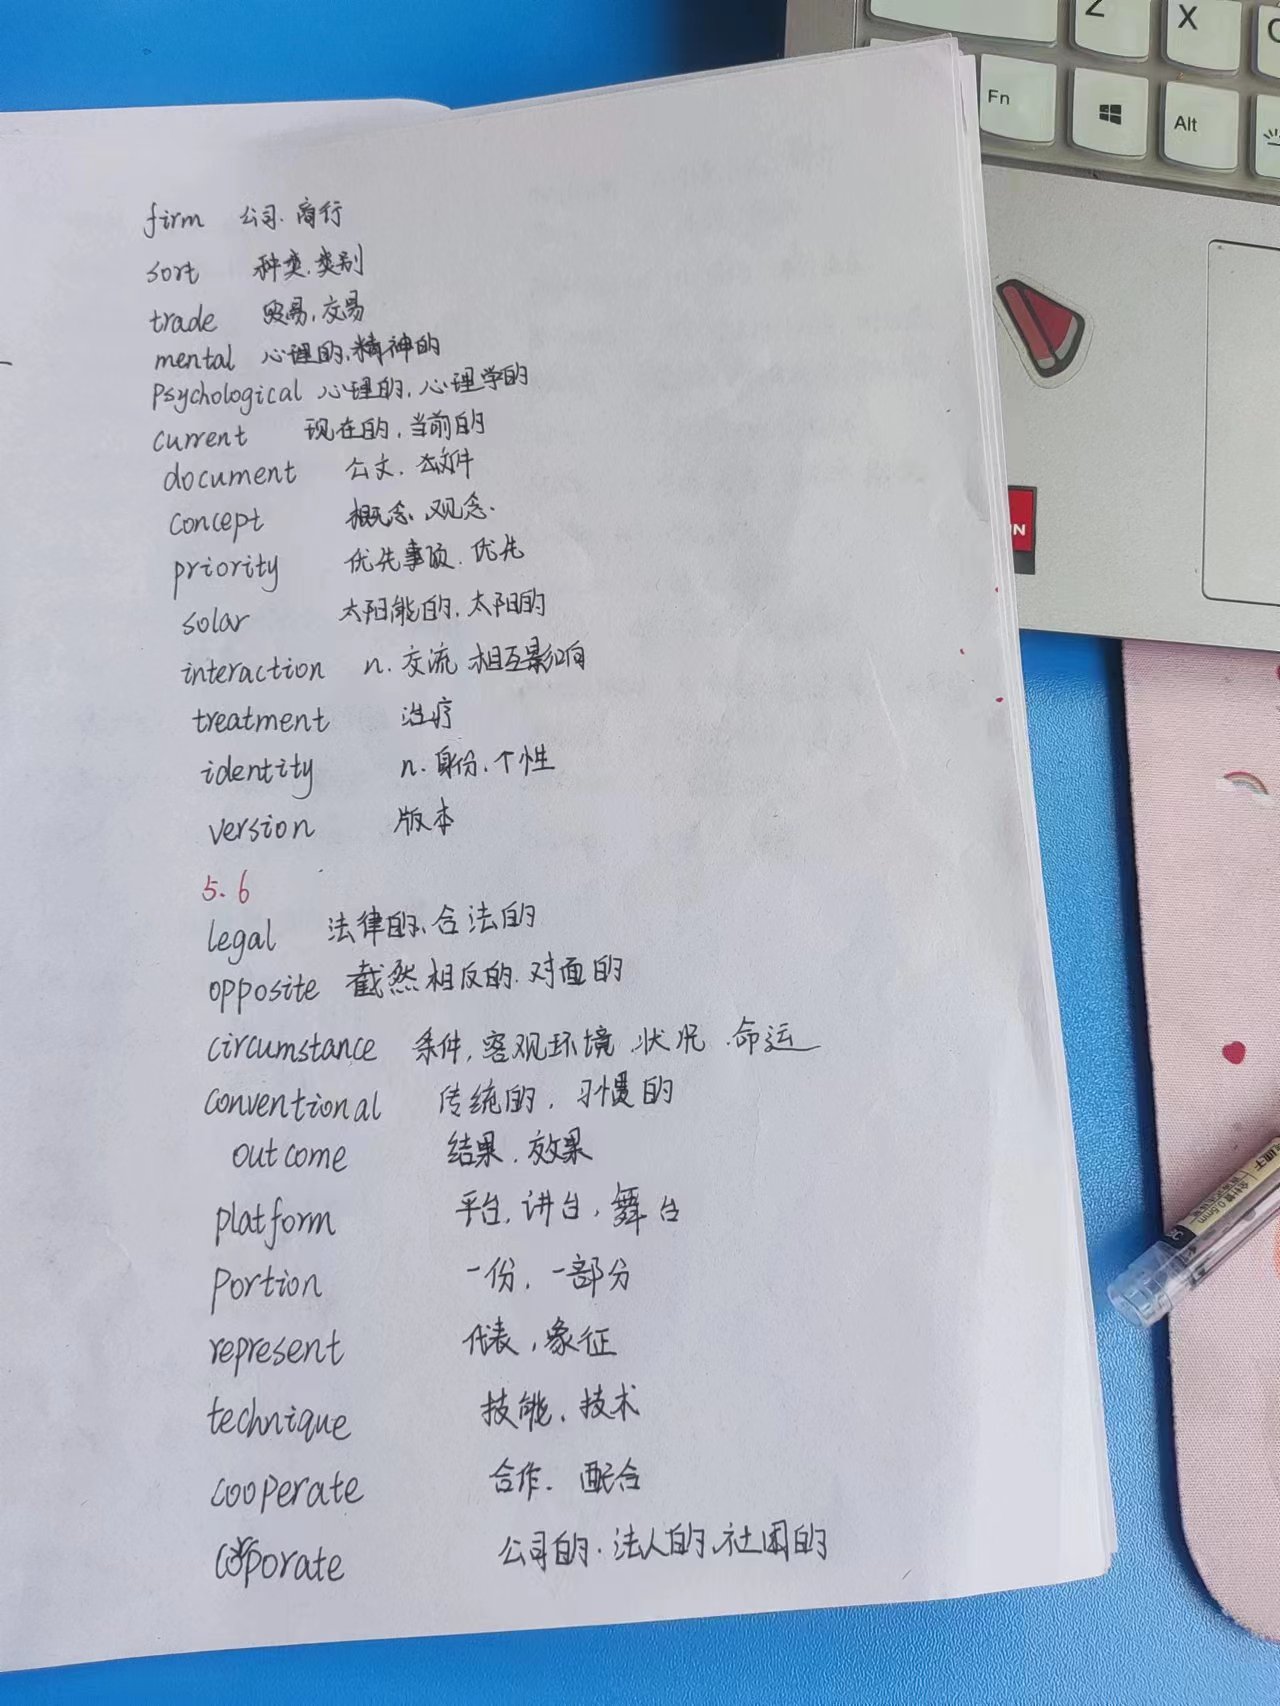 Z X
Fn Alt
firm 公司. 商行
sort 种类. 类别
trade 贸易, 交易
mental 心理的, 精神的
Psychological 心理的, 心理学的
current 现在的, 当前的
document 公文. 文件
concept 概念、观念.
priority 优先事项. 优先
solar 太阳能的, 太阳的
interaction n. 交流 相互影响
treatment 治疗
identity n. 身份、个性
version 版本
5.6
legal 法律的、合法的
opposite 截然相反的. 对面的
circumstance 条件, 客观环境、状况、命运
conventional 传统的, 习惯的
outcome 结果. 效果
platform 平台, 讲台, 舞台
portion 一份, 一部分
represent 代表, 象征
technique 技能、技术
cooperate 合作. 配合
corporate 公司的. 法人的、社团的
0.5mm